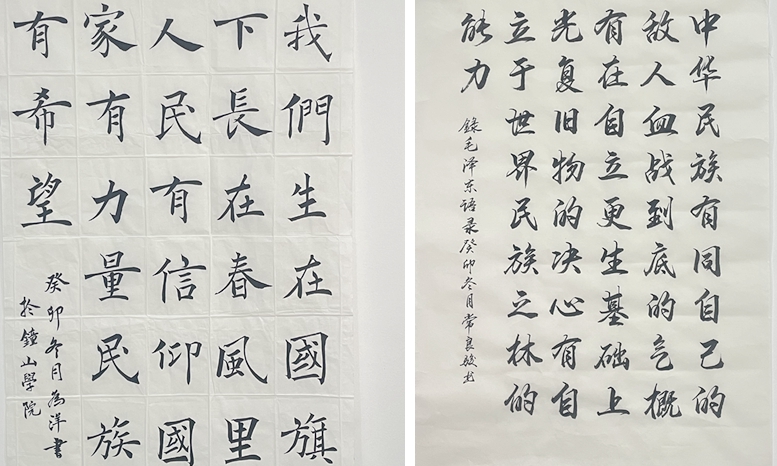 我們生在國旗
下長在春風里
人民有信仰國
家有力量民族
有希望
癸卯冬月為洋書
於鐘山學院
中华民族有同自己的
敌人血战到底的气概
有在自立更生基础上
光复旧物的决心有自
立于世界民族之林的
能力
錄毛泽东语录癸卯冬月常良骏书